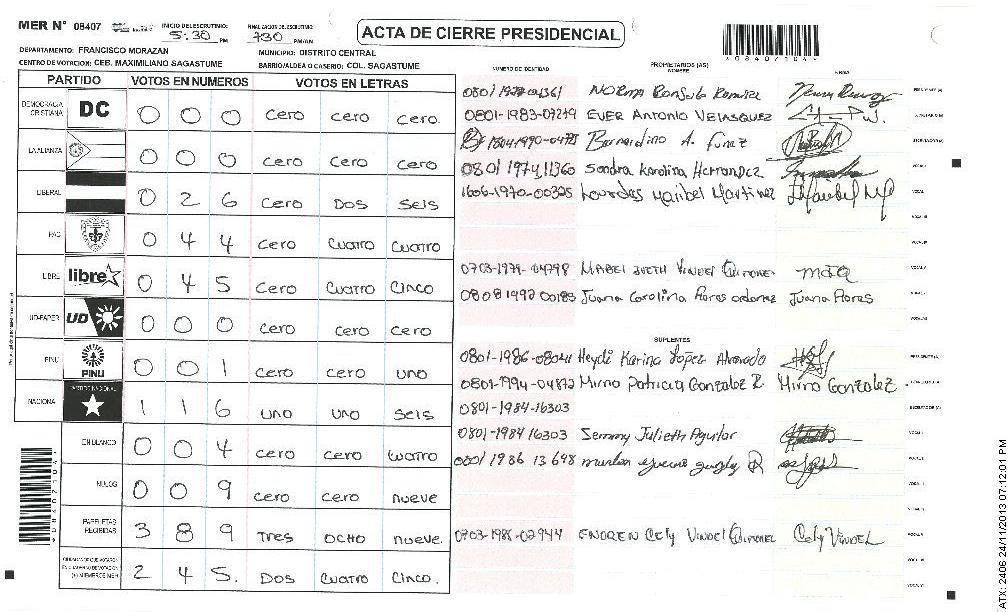 MER N° 08407 INICIO DEL ESCRUTINIO: 5:30 PM FINALIZACION DEL ESCRUTINIO: 730 PM/AM
ACTA DE CIERRE PRESIDENCIAL
DEPARTAMENTO: FRANCISCO MORAZAN MUNICIPIO: DISTRITO CENTRAL
CENTRO DE VOTACION: CEB. MAXIMILIANO SAGASTUME BARRIO/ALDEA O CASERIO: COL. SAGASTUME
PARTIDO VOTOS EN NUMEROS VOTOS EN LETRAS
DEMOCRACIA CRISTIANA DC 0 0 0 cero cero cero.
LA ALIANZA 0 0 0 cero cero cero
LIBERAL 0 2 6 cero Dos seis
PAC 0 4 4 cero cuatro cuatro
LIBRE libre 0 4 5 cero cuatro cinco
UD-FAPER UD 0 0 0 cero cero cero
PINU PINU 0 0 1 cero cero uno
NACIONAL PARTIDO NACIONAL 1 1 6 uno uno seis
EN BLANCO 0 0 4 cero cero cuatro
NULOS 0 0 9 cero cero nueve
PAPELETAS RECIBIDAS 3 8 9 Tres ocho nueve.
2 4 5. Dos cuatro cinco.
NUMERO DE IDENTIDAD PROPIETARIOS (AS) NOMBRE FIRMA
*08407104*
NORMA Consuelo
0801-1983-07219 EVER ANTONIO VELASQUEZ
18041990-04775 Bernardino A. Funez
0801 1974,11360 Sondra Karolina Hernandez
1606-1970-00325 Lourdes Maribel Martinez
0703-1979-04798 MABEL
0808 1992 00183 Juana Carolina Flores Juana Flores
SUPLENTES
0801-1986-08044 Heydi Karina Lopez Alvarado
0801-1994-04872 Mirna Patricia Gonzalez R. Mirna Gonzalez
0801-1984-16303
0801-1984 16303 Semmy Julieth Aguilar
0801 1986 13648
0703-1986-02944 Cely VINDEL Cely VINDEL
*08407104*
ATX: 2406 24/11/2013 07:12:01 PM